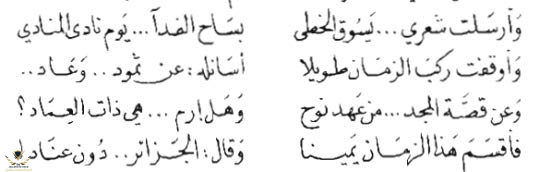 وَأرسَلت شعري ... يَسُوق الخطى بسَاح الفدآ ... يَوم نادى المنادي
وَأوقفت ركبَ الزمَان طويلا أسَائله: عن ثمود .. وَعَاد ..
وَعن قصَّة المجد ... من عَهد نوح وَهَل إرم ... هي ذات العِمَاد؟
فأقسَمَ هَذا الزمَان يَمينا وَقال: الجَزائر .. دُون عنَاد